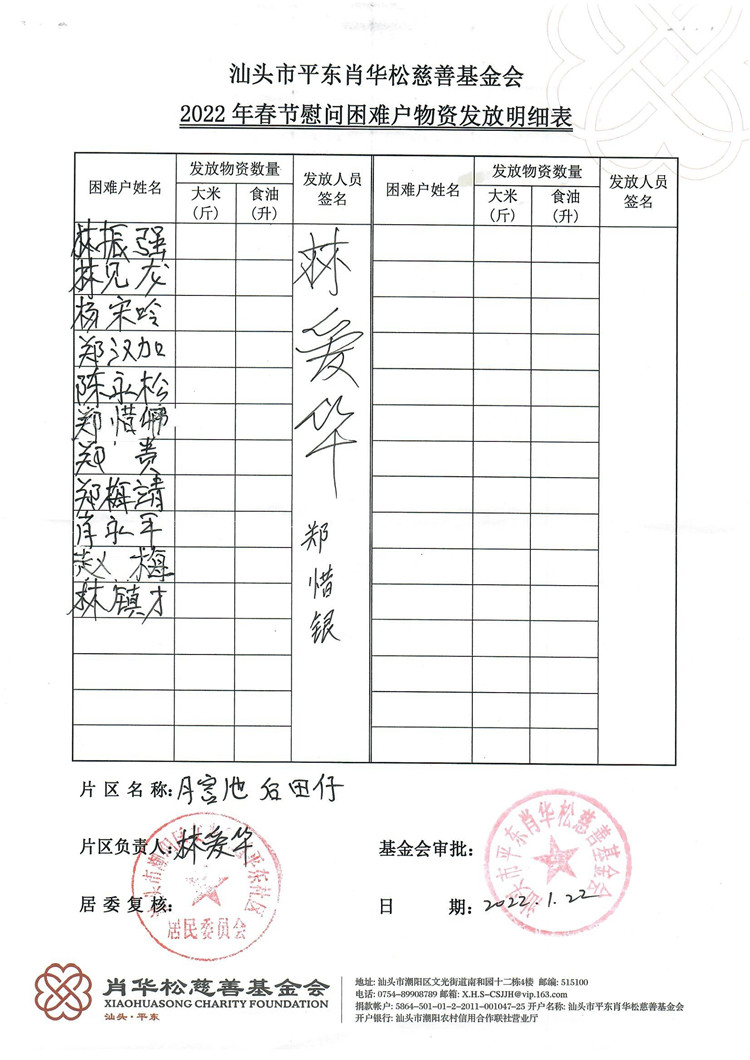 汕头市平东肖华松慈善基金会
2022年春节慰问困难户物资发放明细表
困难户姓名 发放物资数量 发放人员签名 困难户姓名 发放物资数量 发放人员签名
大米(斤) 食油(升) 大米(斤) 食油(升)
林振强
林兄龙
杨宋吟
郑汉加
陈永松
郑惜佛
郑贵
郑梅靖
肖永军
赵梅
林镇才
林爱华
郑惜银
片区名称:月宫池 后田仔
片区负责人:林爱华
基金会审批:
居委复核:
日期:2022.1.22
汕头市潮阳区文光街道平东社区
居民委员会
汕头市平东肖华松慈善基金会
肖华松慈善基金会
XIAOHUASONG CHARITY FOUNDATION
汕头·平东
地址: 汕头市潮阳区文光街道南和园十二栋4楼 邮编: 515100
电话: 0754-89908789 邮箱: X.H.S-CSJJH@vip.163.com
捐款帐户: 5864-501-01-2-2011-001047-25 开户名称: 汕头市平东肖华松慈善基金会
开户银行: 汕头市潮阳农村信用合作联社营业厅